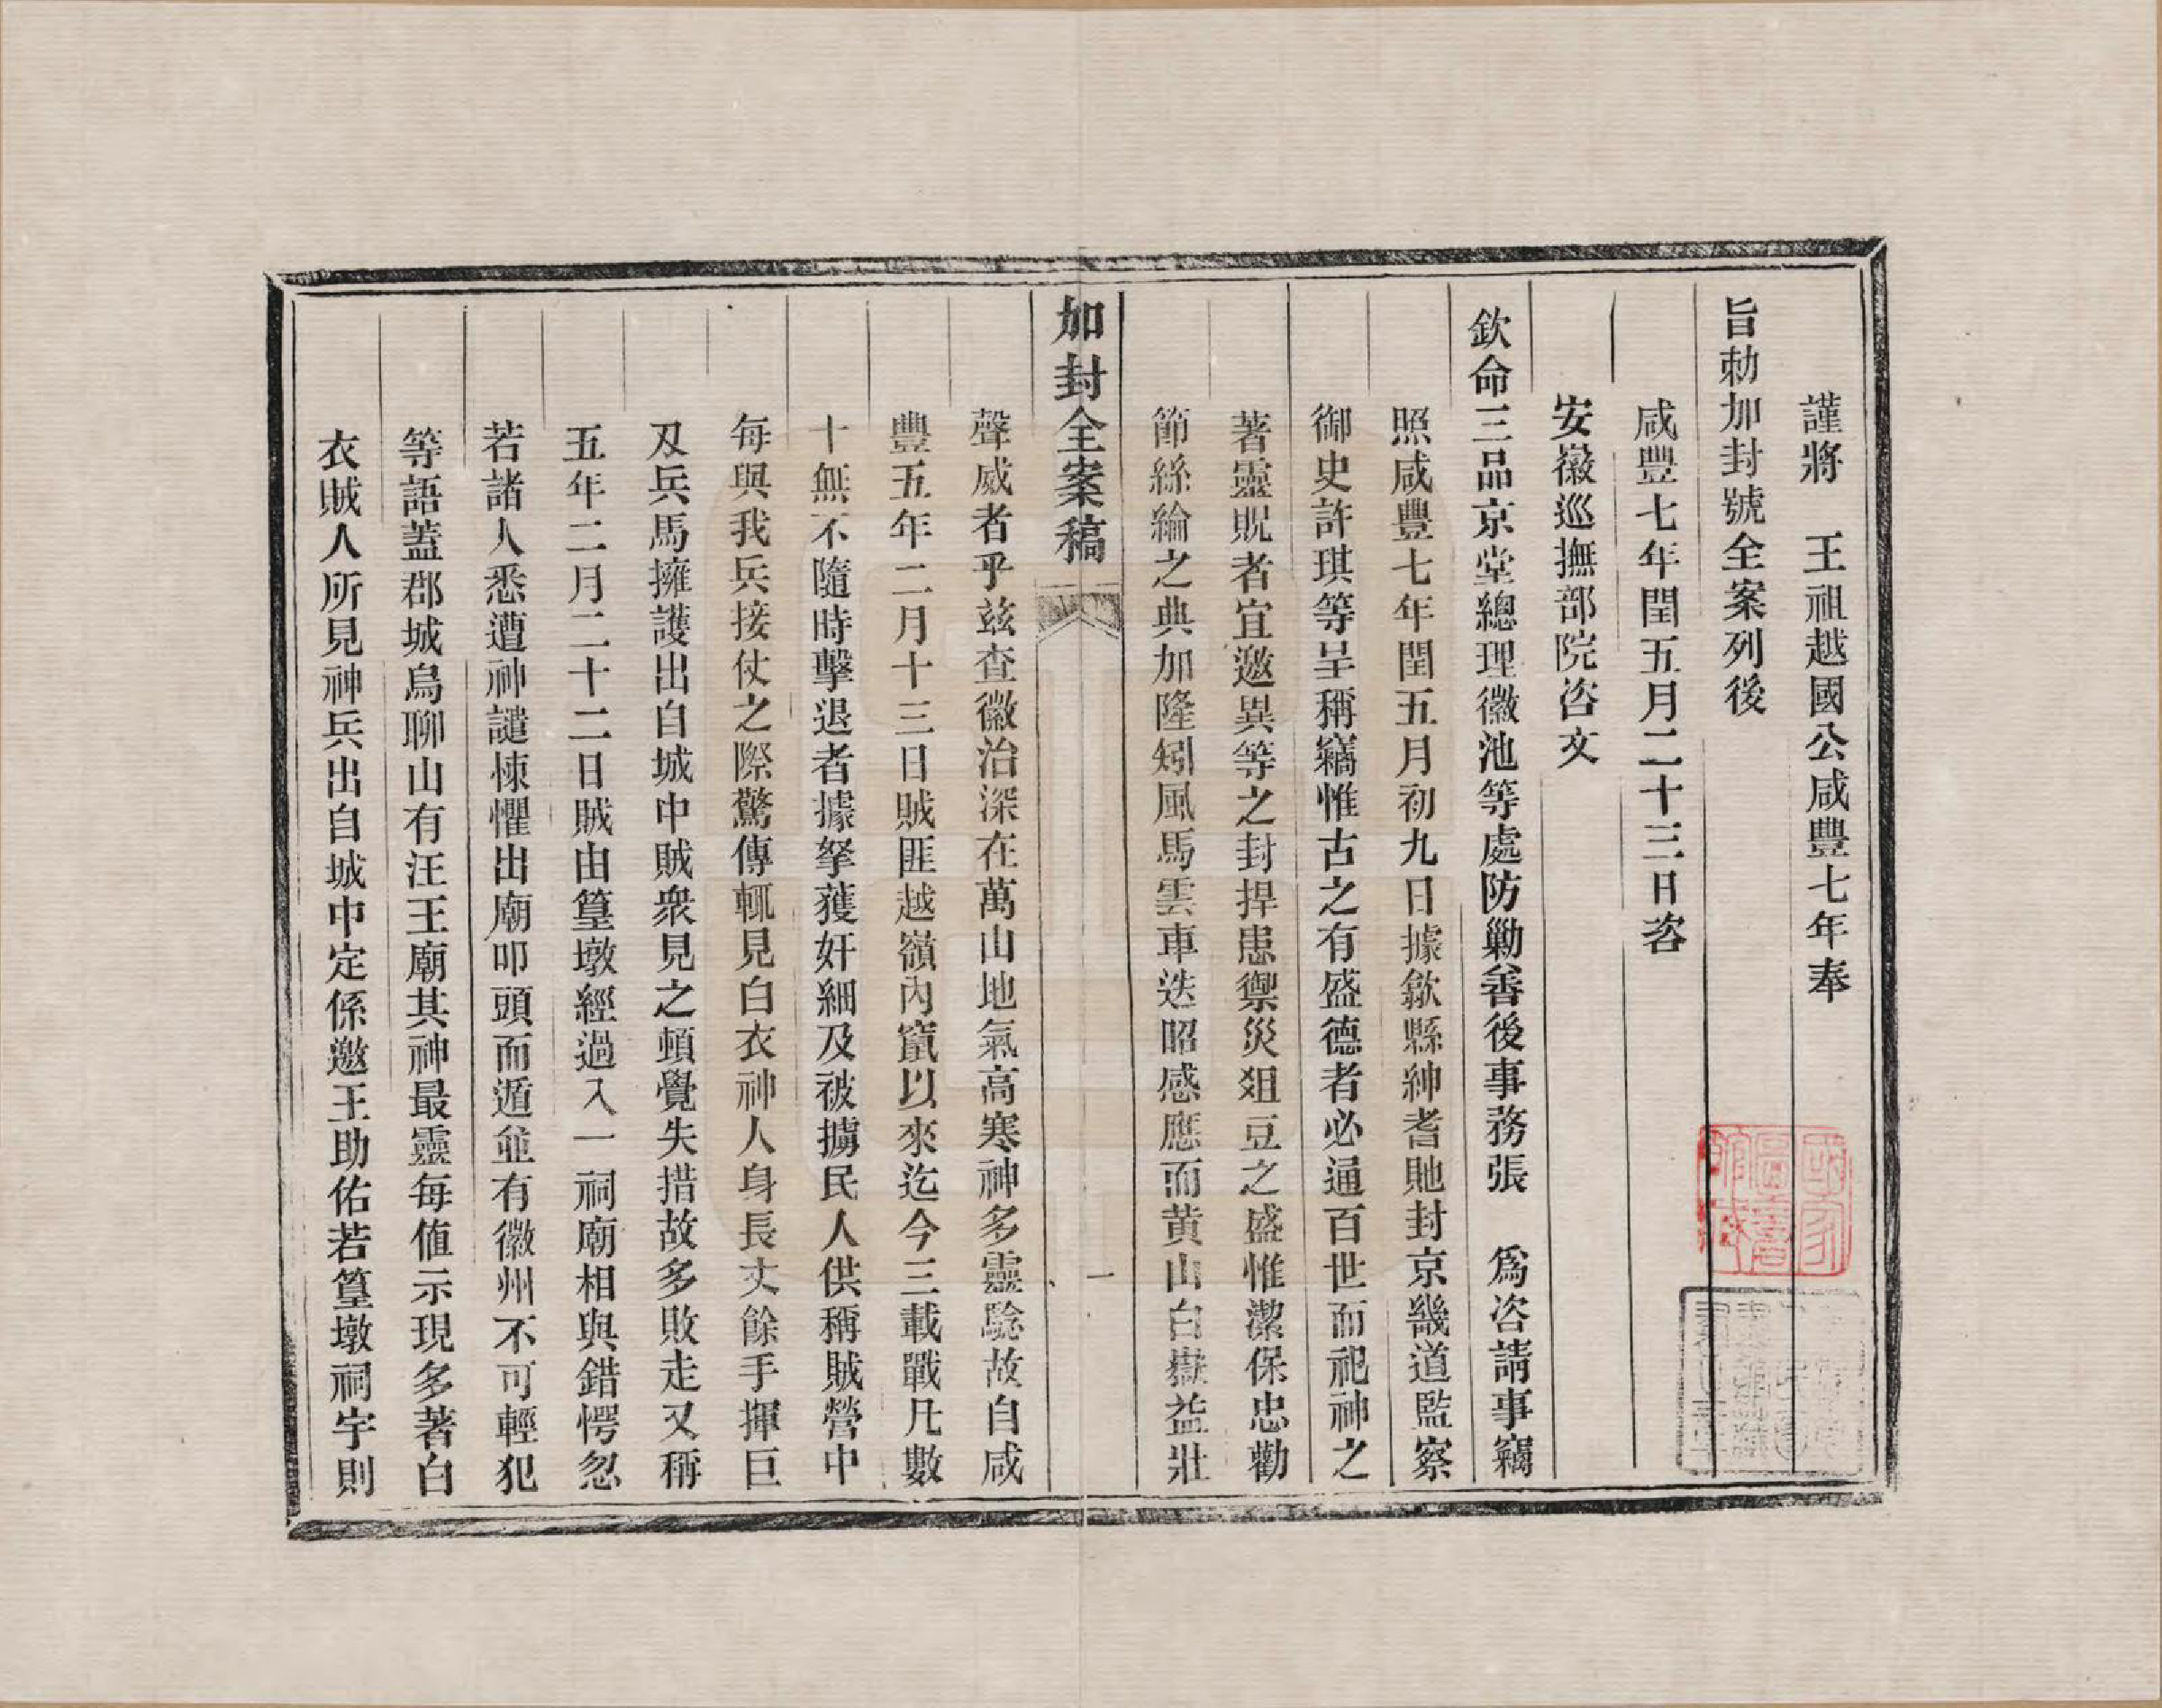 謹將　王祖越國公咸豐七年奉
旨勅加封號全案列後
咸豐七年閏五月二十三日咨
安徽巡撫部院咨文
欽命三品京堂總理徽池等處防勦善後事務張　爲咨請事竊
照咸豐七年閏五月初九日據歙縣紳耆貤封京畿道監察
御史許琪等呈稱竊惟古之有盛德者必通百世而祀神之
著靈貺者宜邀異等之封捍患禦災俎豆之盛惟潔保忠勸
節絲綸之典加隆矧風馬雲車迭昭感應而黄山白嶽益壯
加封全案稿
一
聲威者乎兹查徽治深在萬山地氣高寒神多靈騐故自咸
豐五年二月十三日賊匪越嶺内竄以來迄今三載戰凡數
十無不隨時擊退者據拏獲奸細及被擄民人供稱賊營中
每與我兵接仗之際驚傳輒見白衣神人身長丈餘手揮巨
及兵馬擁護出自城中賊衆見之頓覺失措故多敗走又稱
五年二月二十二日賊由篁墩經過入一祠廟相與錯愕忽
若諸人悉遭神譴悚懼出廟叩頭而遁並有徽州不可輕犯
等語蓋郡城烏聊山有汪王廟其神最靈每值示現多著白
衣賊人所見神兵出自城中定係邀王助佑若篁墩祠宇則
國家圖書館藏